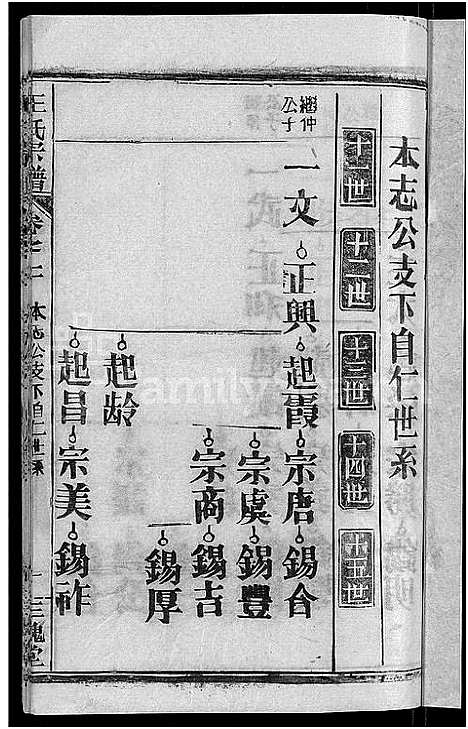 本志公支下自仁世系
十一世 十二世 十三世 十四世 十五世
繼仲公子
一文 正興 起霞 宗唐 錫合
宗虞 錫豐
宗商 錫吉
錫厚
起龄
起昌 宗美 錫祚
王氏宗譜 卷七 本志公支下自仁世系 一 三槐堂